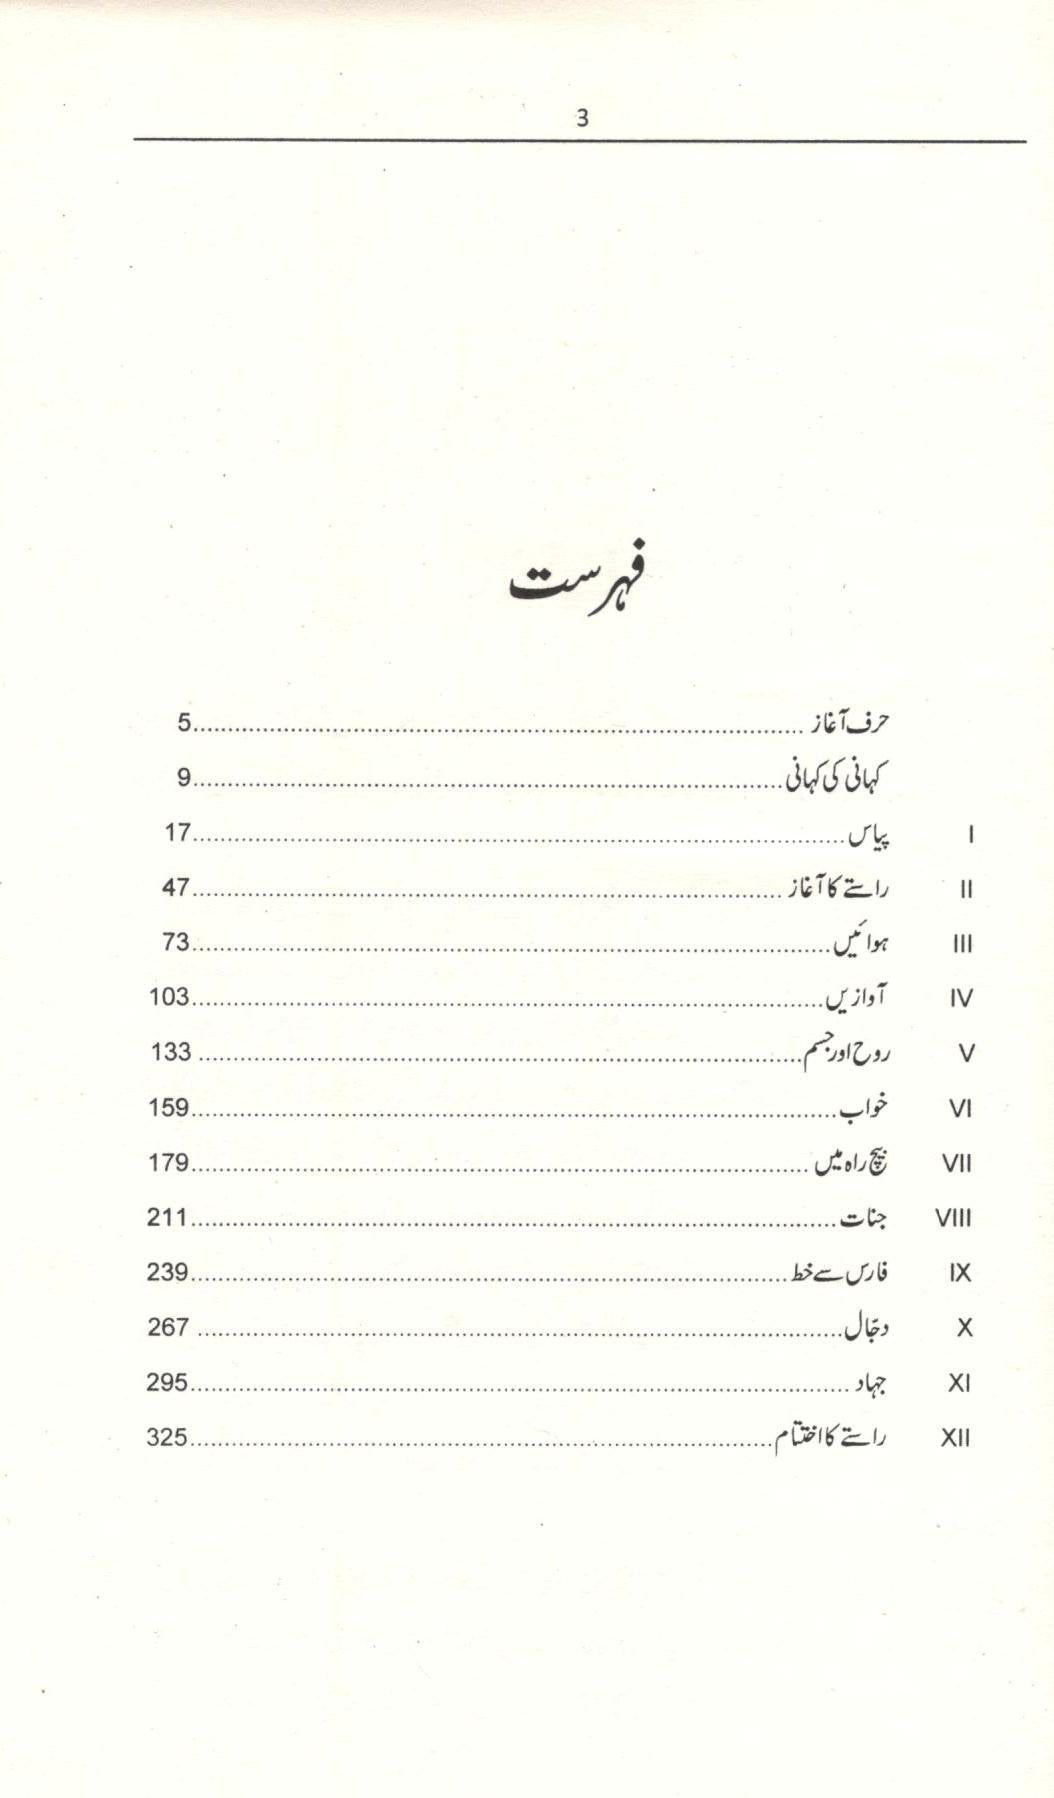 3
فہرست
حرف آغاز ........ 5
کہانی کی کہانی ........ 9
I پیاس ........ 17
II راستے کا آغاز ........ 47
III ہوائیں ........ 73
IV آوازیں ........ 103
V روح اور جسم ........ 133
VI خواب ........ 159
VII بیچ راہ میں ........ 179
VIII جنات ........ 211
IX فارس سے خط ........ 239
X دجّال ........ 267
XI جہاد ........ 295
XII راستے کا اختتام ........ 325